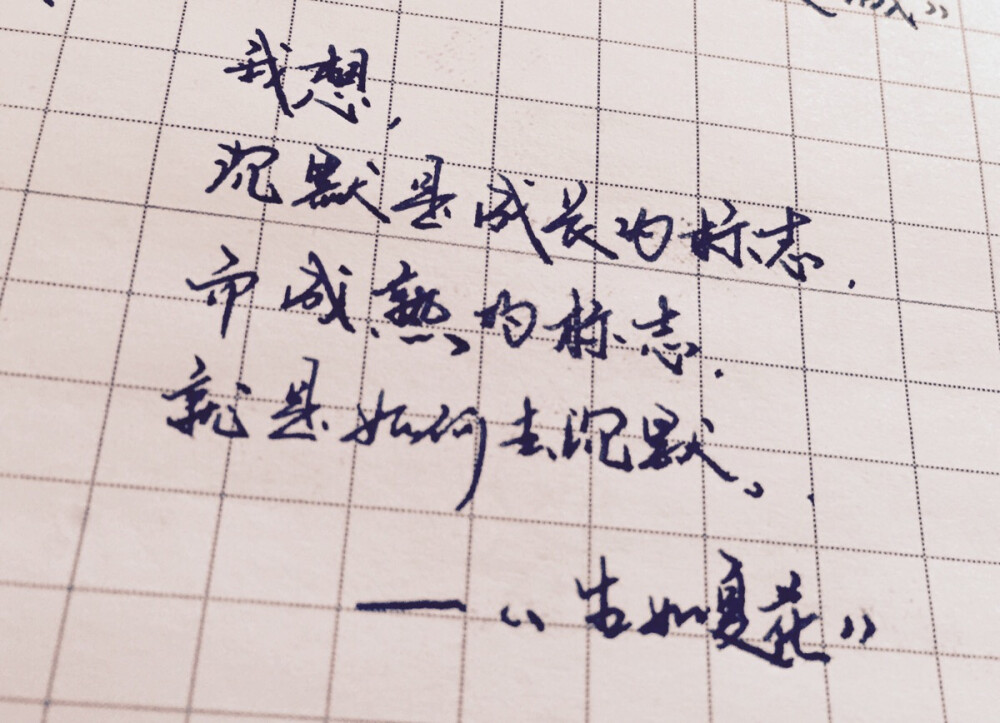 我想,
沉默是成长的标志.
而成熟的标志.
就是如何去沉默。
——《生如夏花》